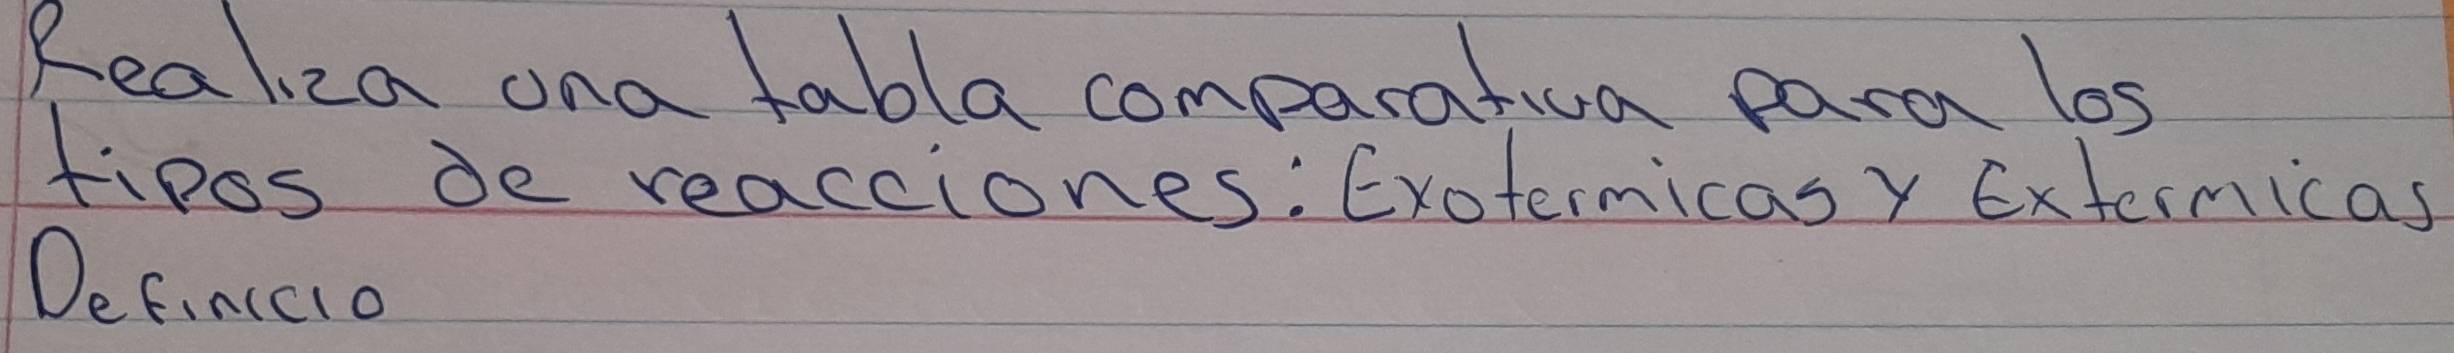 Realiza una tabla comparativa para los
tipos de reacciones: Exotermicas y Extermicas
Definicio